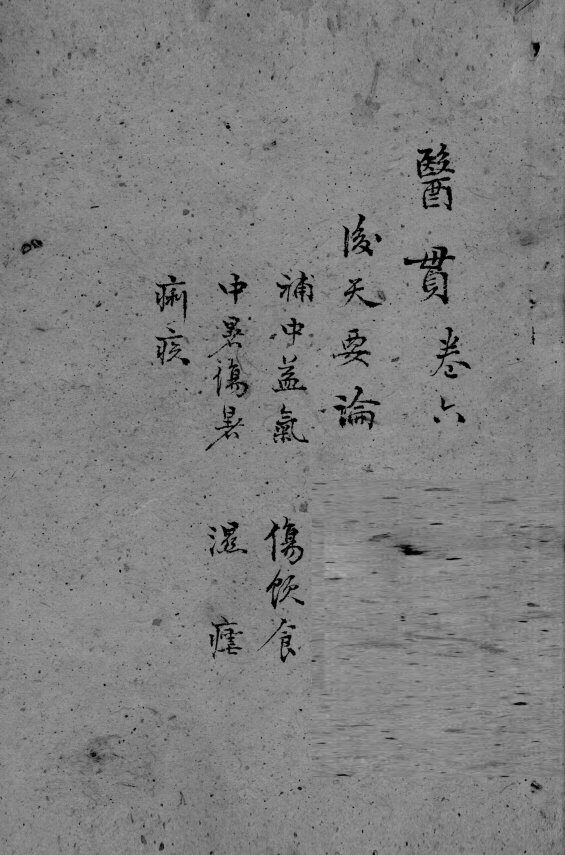 醫貫卷六
後天要論
補中益氣 傷飲食
中暑傷暑 湿 瘧
痢疾